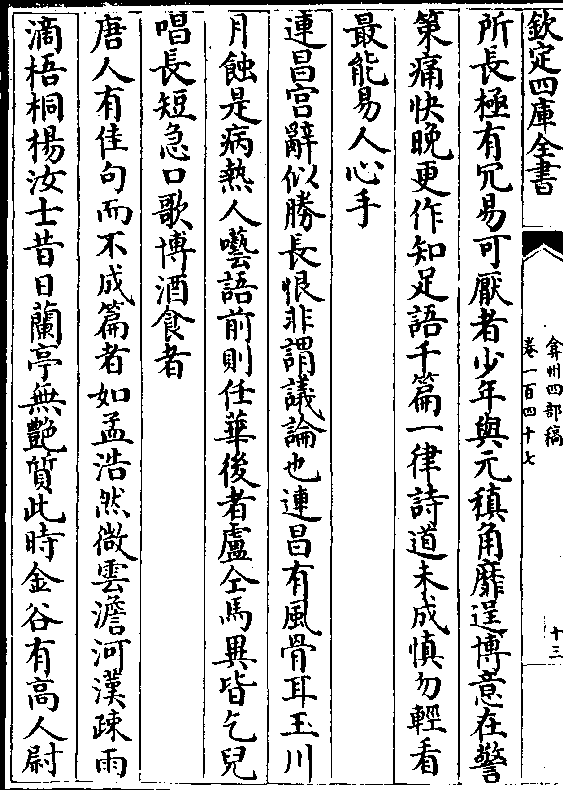 欽定四庫全書
弇州四部稿
卷一百四十七
十三
所長極有冗易可厭者少年與元稹角靡逞博意在警
策痛快晚更作知足語千篇一律詩道未成慎勿輕看
最能易人心手
連昌宫辭似勝長恨非謂議論也連昌有風骨耳玉川
月蝕是病熱人囈語前則任華後者盧仝馬異皆乞兒
唱長短急口歌博酒食者
唐人有佳句而不成篇者如孟浩然微雲澹河漢疎雨
滴梧桐楊汝士昔日蘭亭無艷質此時金谷有高人尉